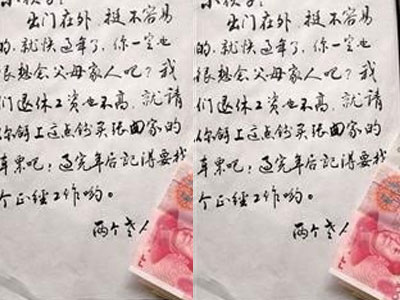 出门在外 挺不容易
的，就快过年了，你一定也
很想念父母家人吧？我
们退休工资也不高，就请
你 上这点钱买张回家的
车票吧！过完年后記得要找
个正经工作哟。
两个老人
出门在外 挺不容易
的，就快过年了，你一定也
很想念父母家人吧？我
们退休工资也不高，就请
你 上这点钱买张回家的
车票吧！过完年后記得要找
个正经工作哟。
两个老人